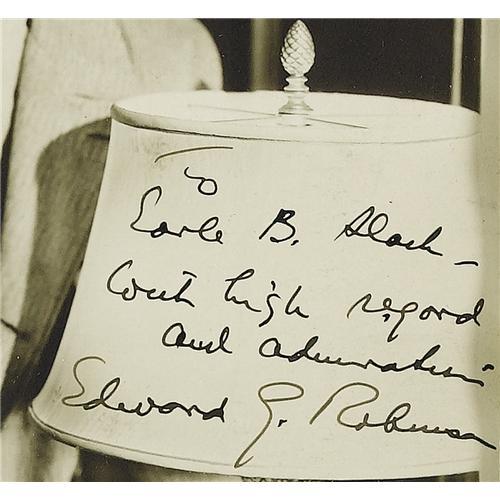 To
Earle B.
With high regard
and admiration
Edward G. Robinson